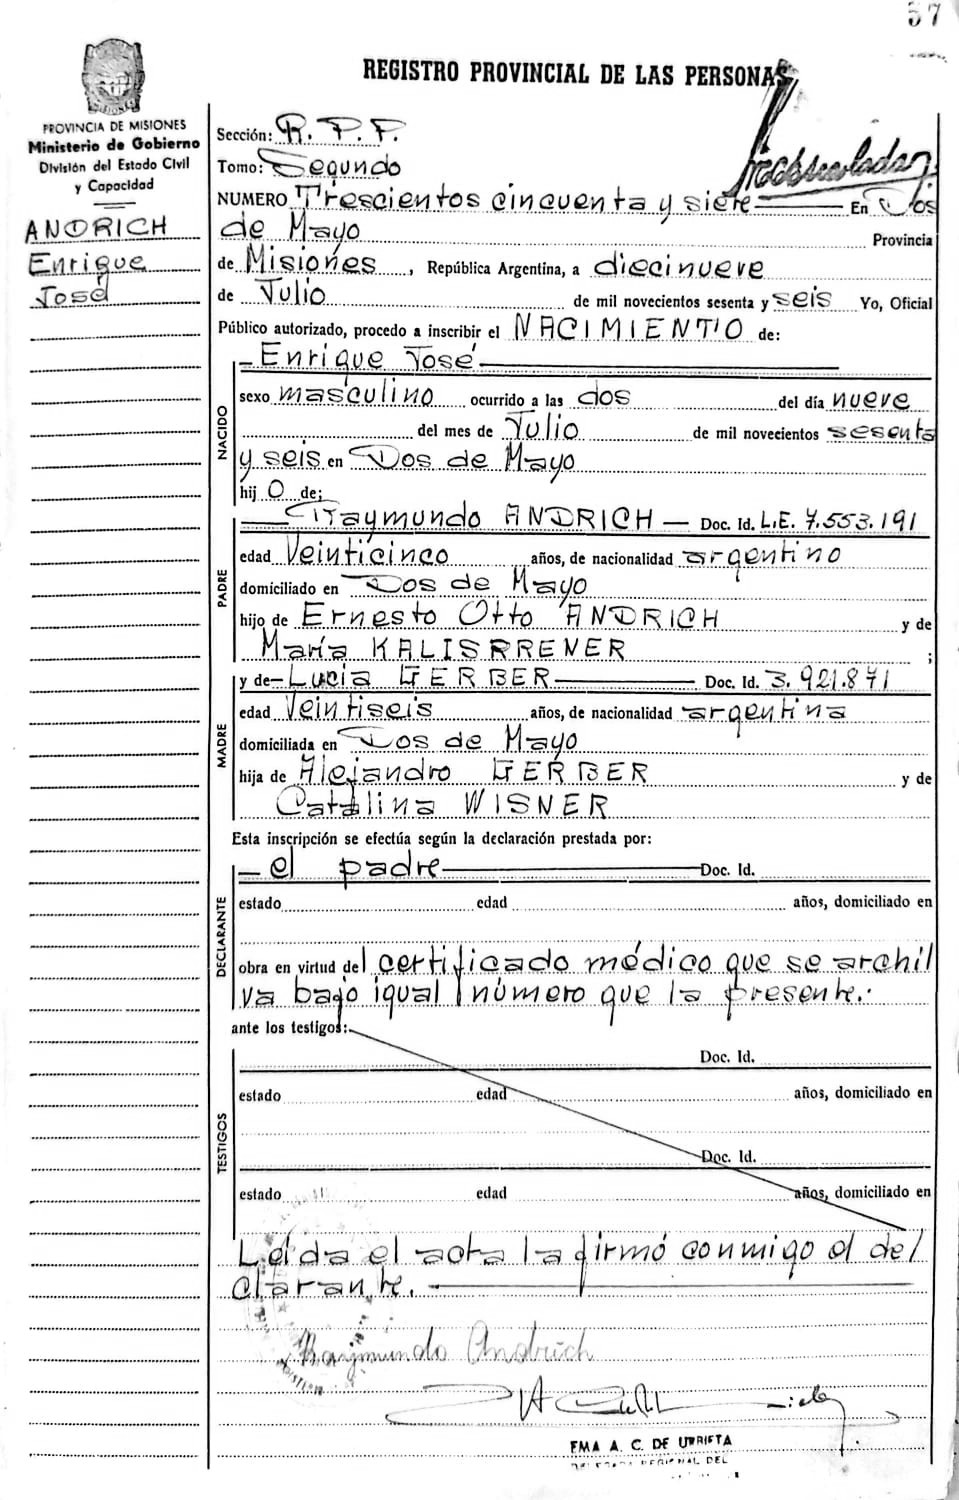 57
REGISTRO PROVINCIAL DE LAS PERSONAS
PROVINCIA DE MISIONES
Ministerio de Gobierno
División del Estado Civil
y Capacidad
ANDRICH
Enrique
José
Sección: R. P. P.
Tomo: Segundo
NUMERO Trescientos cincuenta y siete En Dos
de Mayo Provincia
de Misiones, República Argentina, a diecinueve
de Julio de mil novecientos sesenta y seis Yo, Oficial
Público autorizado, procedo a inscribir el NACIMIENTO de:
NACIDO
Enrique José
sexo masculino ocurrido a las dos del día nueve
del mes de Julio de mil novecientos sesenta
y seis en Dos de Mayo
hij O de;
PADRE
Raymundo ANDRICH — Doc. Id. L.E. 7.553.191
edad Veinticinco años, de nacionalidad argentino
domiciliado en Dos de Mayo
hijo de Ernesto Otto ANDRICH y de
María KALISRRENER ;
MADRE
y de Lucía GERBER Doc. Id. 3.921.871
edad Veintiseis años, de nacionalidad argentina
domiciliada en Dos de Mayo
hija de Alejandro GERBER y de
Catalina WISNER
Esta inscripción se efectúa según la declaración prestada por:
DECLARANTE
el padre Doc. Id.
estado edad años, domiciliado en
obra en virtud del certificado médico que se archi
va bajo igual número que la presente.
ante los testigos:
TESTIGOS
Doc. Id.
estado edad años, domiciliado en
Doc. Id.
estado edad años, domiciliado en
Leída el acta la firmó conmigo el de
clarante.
Raymundo Andrich
EMA A. C. DE URRIETA
DELEGADA REGIONAL DEL